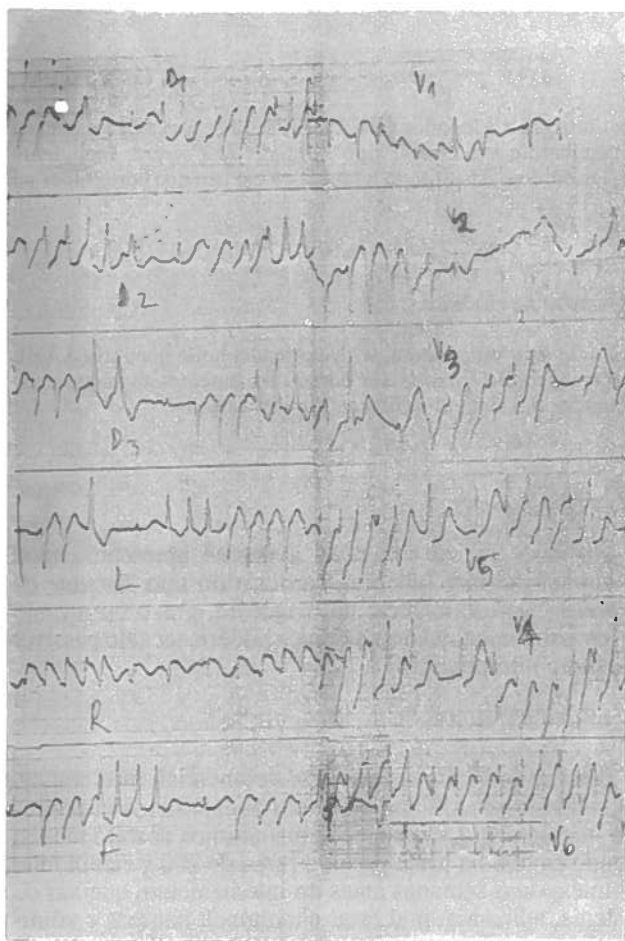 D1
V1
D2
V2
D3
V3
L
V5
R
V4
F
V6